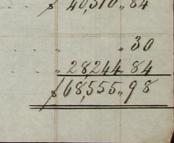 $ 40,310.84
" .30
" 28244.84
$68,555.98